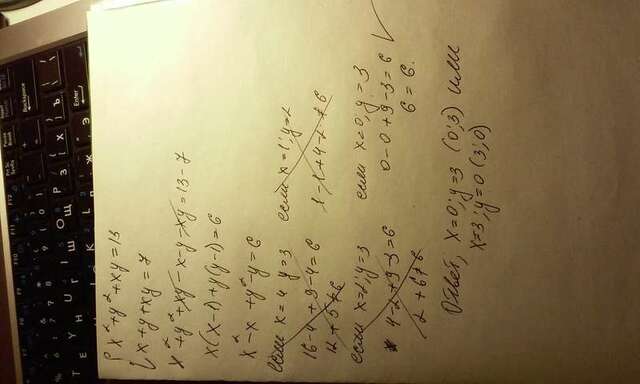 x²+y²+xy=13
x+y+xy=7
x²+y²+xy-x-y-xy=13-7
x(x-1)+y(y-1)=6
x²-x+y²-y=6
если x=4 y=3
16-4+9-4=6
12+5≠6
если x=2; y=3
4-2+9-3=6
2+6≠6
если x=1; y=2
1-1+4-2≠6
если x=0; y=3
0-0+9-3=6
6=6.
Ответ, x=0; y=3 (0;3) или
x=3; y=0 (3;0)